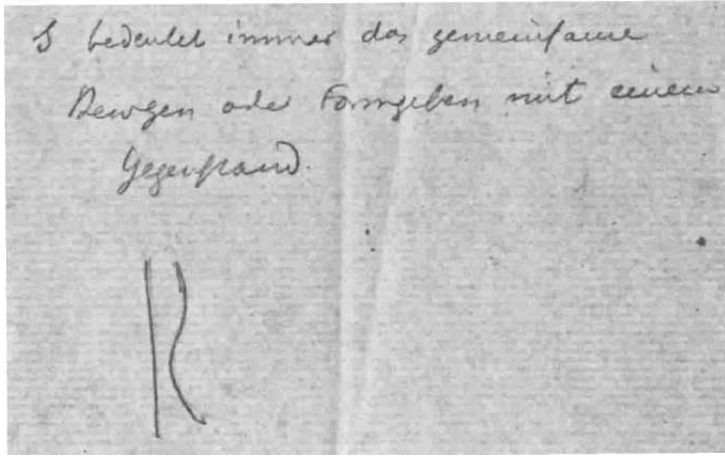 S bedeutet immer das gemeinsame
Bewegen oder Formgeben mit einem
Gegenstand.